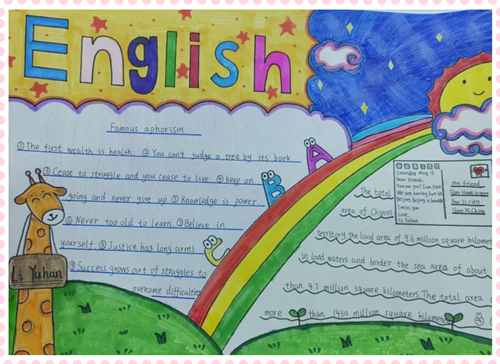 English
Famous aphorism
①The first wealth is health. ②You can't judge a tree by its bark
③Cease to struggle and you cease to live ④Keep on
going and never give up ⑤Knowledge is power.
⑥Never too old to learn ⑦Believe in
yourself ⑧Justice has long arms
⑨Success grows out of struggles to
overcome difficulties
Li Yuhan
A
B
C
Saturday May 13
Dear friend.
Love
Li Yuhan
The total
area of Chinas
territory the land area of 9.6 million square kilometers
in land waters and border the sea area of about
than 4.7 million square kilometers. The total area
more than 1430 million square kilometers